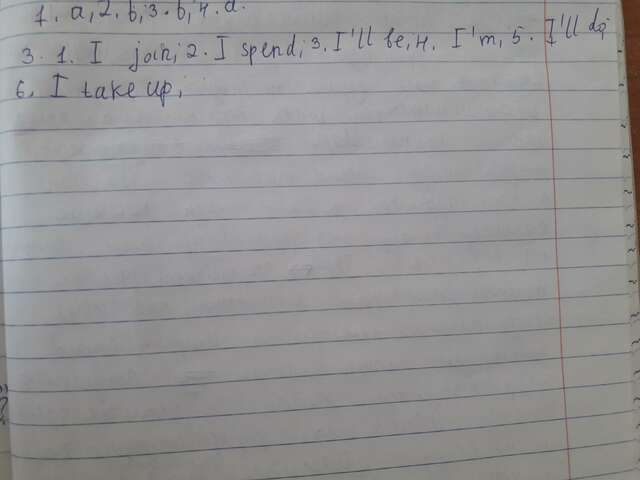 1. a, 2. b, 3. b, 4. d.
3. 1. I join, 2. I spend, 3. I'll be, 4. I'm, 5. I'll do,
6. I take up,